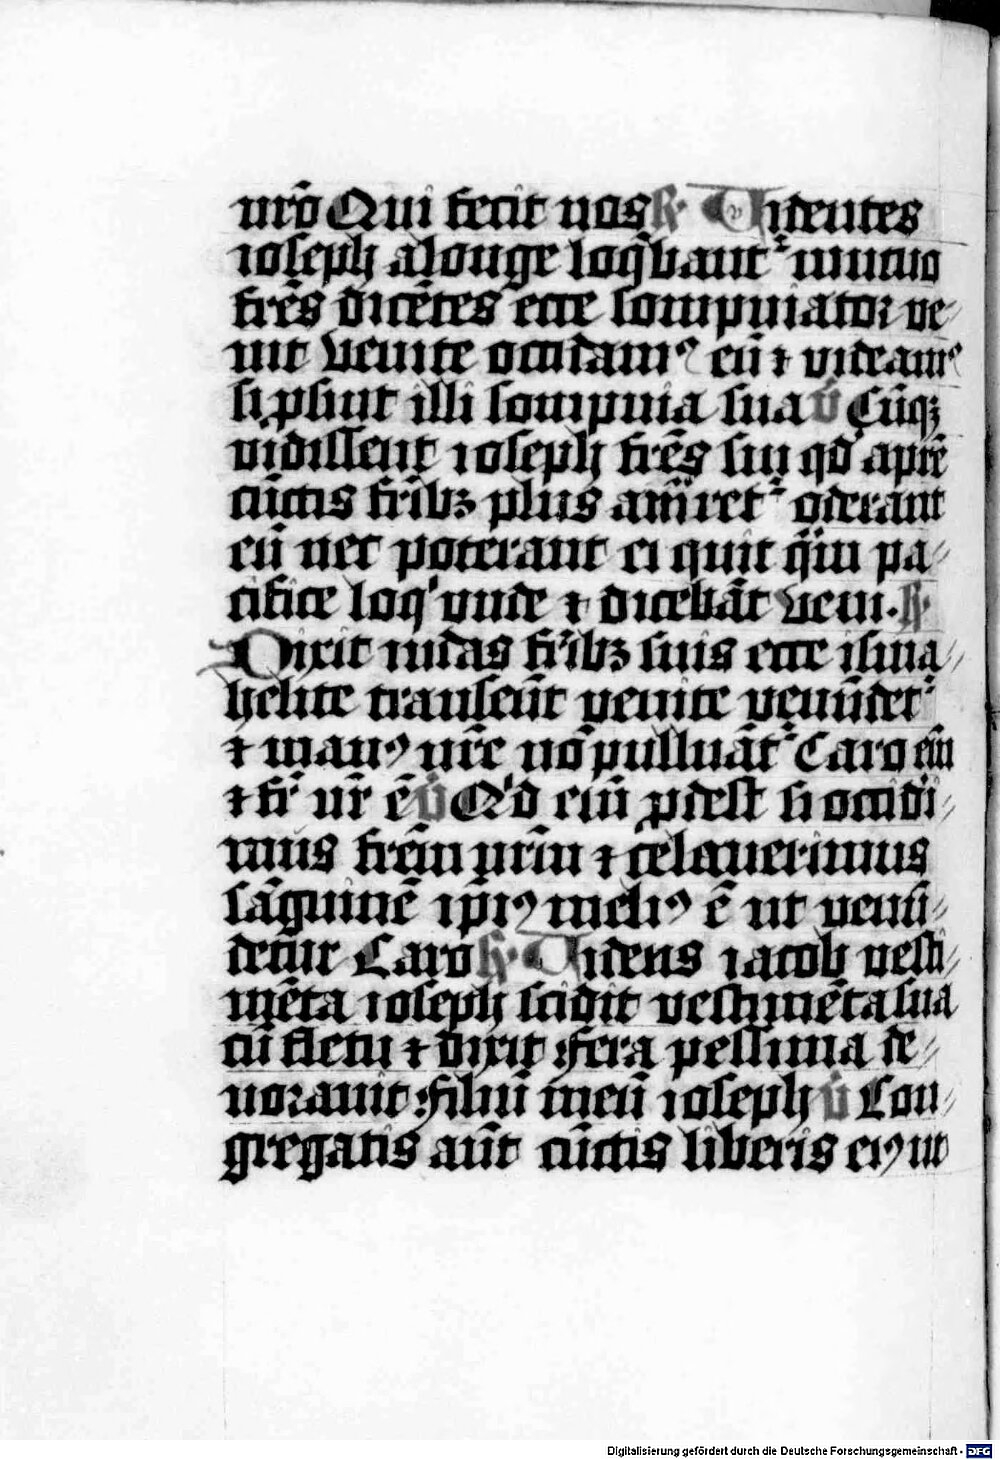 nr̄o Qui fecit nos R̷ Videntes
ioseph alonge loq̄bant᷑ mutuo
fr̄es dicētes ecce sompniator ve⸗
nit Venite occidamꝰ eū ⁊ videamꝰ
si ꝓsint illi sompnia sua v̄ Cūqꝫ
vidissent ioseph fr̄es sui qd̓ a pr̄e
cūctis fr̄ibꝫ plus amaret᷑ oderant
eū nec poterant ei quit q̄m pa⸗
cifice loq̓ vnde ⁊ dicebāt Veni. R̷
Dixit iudas fr̄ibꝫ suis ecce isma⸗
helite transeūt venite venūdet᷑
⁊ manꝰ nr̄e nō pulluāt᷑ Caro eīn
⁊ fr̄ nr̄ ē v̄ Q̓d eīn ꝓdest si occidi⸗
mus fr̄em nr̄m ⁊ celauerimus
sāguinē ip̄iꝰ meliꝰ ē ut venū⸗
detur Caro R̷ Videns iacob vesti⸗
mēta ioseph scidit vestimēta sua
cū fletu ⁊ dixit Fera pessima de⸗
uorauit filiū meū ioseph v̄ Con⸗
gregatis aūt cūctis liberis eiꝰ ut
Digitalisierung gefördert durch die Deutsche Forschungsgemeinschaft - DFG